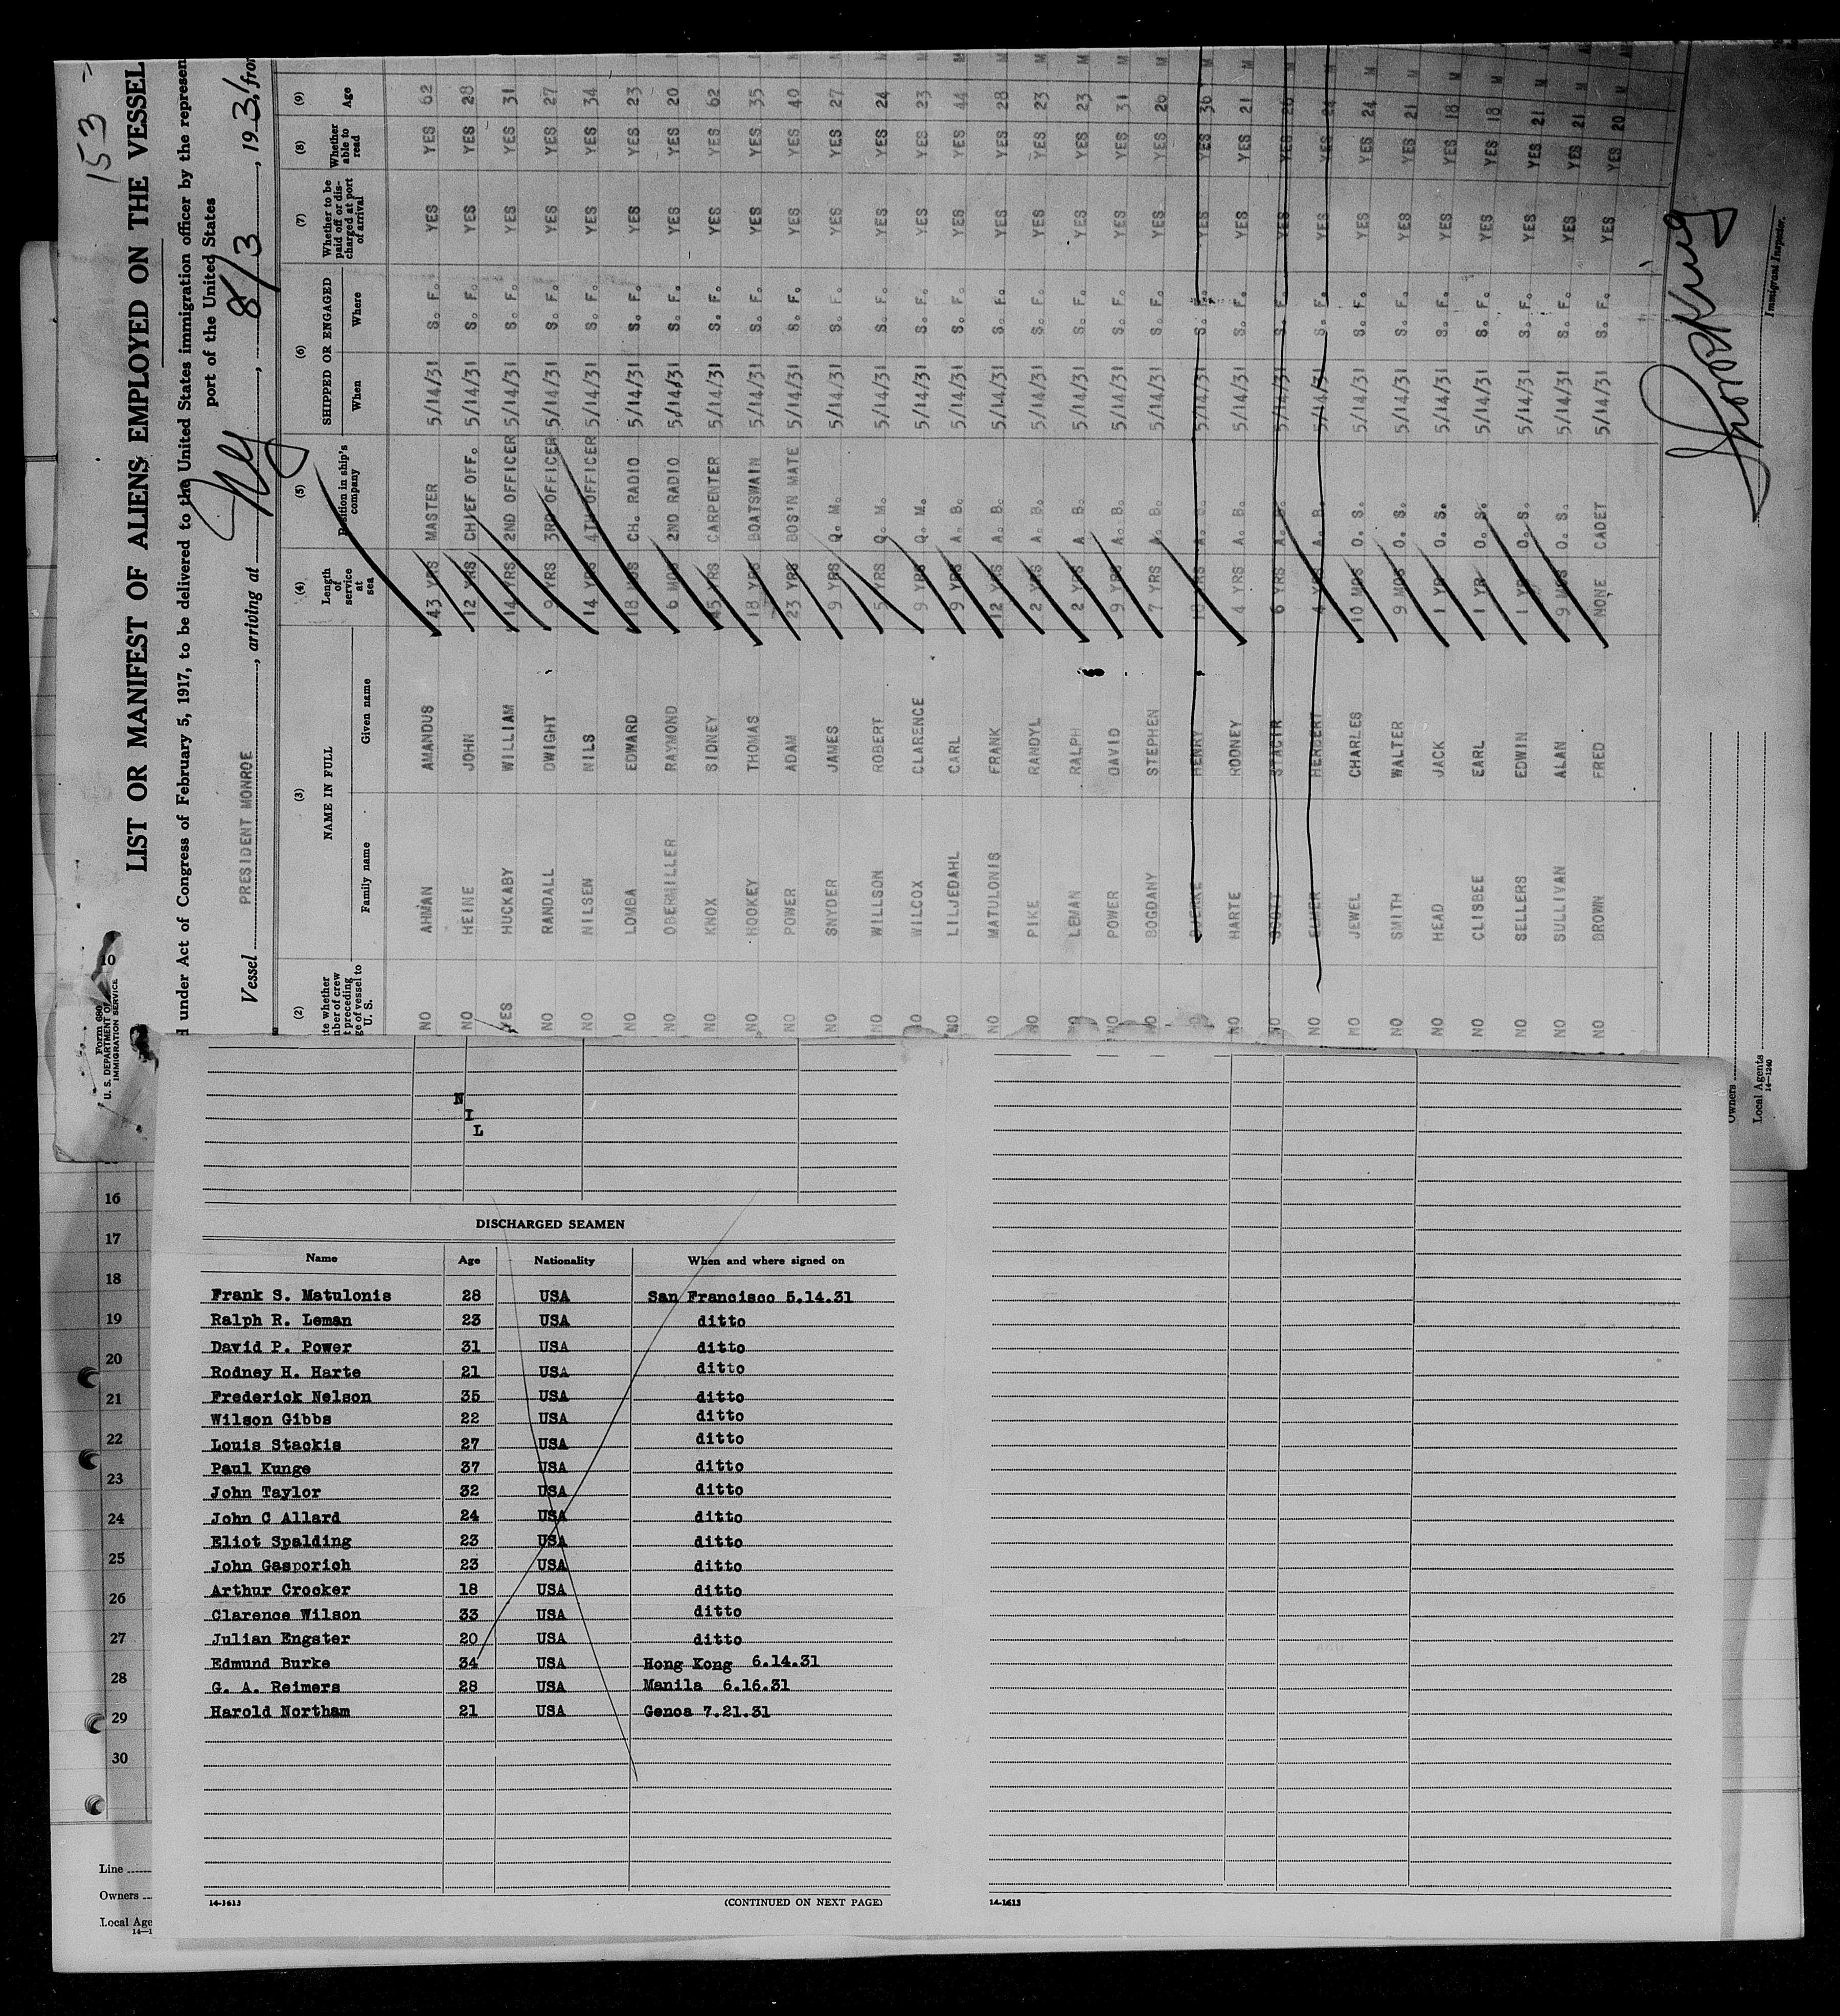 153
LIST OR MANIFEST OF ALIENS EMPLOYED ON THE VESSEL
under Act of Congress of February 5, 1917, to be delivered to the United States immigration officer by the represen
port of the United States
Vessel PRESIDENT MONROE, arriving at NY, 8/3, 1931, from
(2) (3) (4) (5) (6) (7) (8) (9)
NAME IN FULL
Family name Given name
Length of service at sea
Position in ship's company
SHIPPED OR ENGAGED
When Where
Whether to be paid off or discharged at port of arrival
Whether able to read
Age
NO AHMAN AMANDUS 43 YRS MASTER 5/14/31 S. F. YES YES 62
NO HEINE JOHN 12 YRS CHIEF OFF. 5/14/31 S. F. YES YES 28 M
YES HUCKABY WILLIAM 14 YRS 2ND OFFICER 5/14/31 S. F. YES YES 31 M
NO RANDALL DWIGHT 9 YRS 3RD OFFICER 5/14/31 S. F. YES YES 27 M
NO NILSEN NILS 14 YRS 4TH OFFICER 5/14/31 S. F. YES YES 34 M
NO LOMBA EDWARD 18 MOS CH. RADIO 5/14/31 S. F. YES YES 23 M
NO OBERMILLER RAYMOND 6 MOS 2ND RADIO 5/14/31 S. F. YES YES 20 M
NO KNOX SIDNEY 45 YRS CARPENTER 5/14/31 S. F. YES YES 62
NO HOOKEY THOMAS 18 YRS BOATSWAIN 5/14/31 S. F. YES YES 35
NO POWER ADAM 23 YRS BOS'N MATE 5/14/31 S. F. YES YES 40 M
NO SNYDER JAMES 9 YRS Q. M. 5/14/31 S. F. YES YES 27 M
NO WILLSON ROBERT 5 YRS Q. M. 5/14/31 S. F. YES YES 24 M
NO WILCOX CLARENCE 9 YRS Q. M. 5/14/31 S. F. YES YES 23 M
NO LILJEDAHL CARL 9 YRS A. B. 5/14/31 S. F. YES YES 44 M
NO MATULONIS FRANK 12 YRS A. B. 5/14/31 S. F. YES YES 28 M
NO PIKE RANDYL 2 YRS A. B. 5/14/31 S. F. YES YES 23 M
NO LEMAN RALPH 2 YRS A. B. 5/14/31 S. F. YES YES 23 M
NO POWER DAVID 9 YRS A. B. 5/14/31 S. F. YES YES 31 M
NO BOGDANY STEPHEN 7 YRS A. B. 5/14/31 S. F. YES YES 26 M
HENRY YRS A. B. 5/14/31 S. F. YES YES 36 M
NO HARTE RODNEY 4 YRS A. B. 5/14/31 S. F. YES YES 21 M
NO SCOTT 6 YRS A. B. 5/14/31 S. F. YES YES 26 M
NO ELMER HERBERT 4 YRS A. B. 5/14/31 S. F. YES YES 24 M
NO JEWEL CHARLES 10 MOS O. S. 5/14/31 S. F. YES YES 24 M
NO SMITH WALTER 9 MOS O. S. 5/14/31 S. F. YES YES 21 M
NO HEAD JACK 1 YR O. S. 5/14/31 S. F. YES YES 18 M
NO CLISBEE EARL 1 YR O. S. 5/14/31 S. F. YES YES 18 M
NO SELLERS EDWIN 1 YR O. S. 5/14/31 S. F. YES YES 21 M
NO SULLIVAN ALAN 9 MOS O. S. 5/14/31 S. F. YES YES 21 M
NO BROWN FRED NONE CADET 5/14/31 S. F. YES YES 20 M
Immigrant Inspector.
Owners
Local Agents
14-1240
10
Form 680
U. S. DEPARTMENT OF
IMMIGRATION SERVICE
N
I
L
DISCHARGED SEAMEN
Name Age Nationality When and where signed on
Frank S. Matulonis 28 USA San Francisco 5.14.31
Ralph R. Leman 23 USA ditto
David P. Power 31 USA ditto
Rodney H. Harte 21 USA ditto
Frederick Nelson 35 USA ditto
Wilson Gibbs 22 USA ditto
Louis Stackis 27 USA ditto
Paul Kunge 37 USA ditto
John Taylor 32 USA ditto
John C Allard 24 USA ditto
Eliot Spalding 23 USA ditto
John Gasporich 23 USA ditto
Arthur Crocker 18 USA ditto
Clarence Wilson 33 USA ditto
Julian Engster 20 USA ditto
Edmund Burke 34 USA Hong Kong 6.14.31
G. A. Reimers 28 USA Manila 6.16.31
Harold Northam 21 USA Genoa 7.21.31
14-1613 (CONTINUED ON NEXT PAGE)
14-1613
16
17
18
19
20
21
22
23
24
25
26
27
28
29
30
Line
Owners
Local Age
14-1